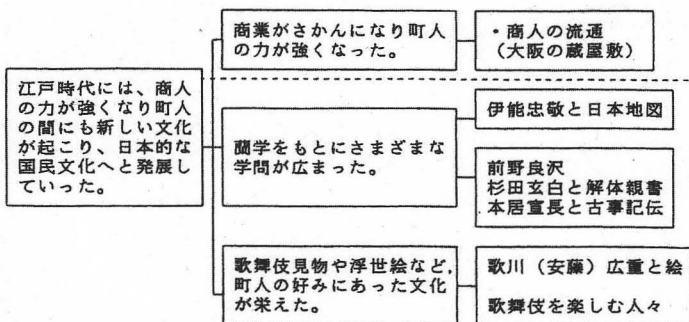 江戸時代には、商人
の力が強くなり町人
の間にも新しい文化
が起こり、日本的な
国民文化へと発展し
ていった。
商業がさかんになり町人
の力が強くなった。
・商人の流通
（大阪の蔵屋敷）
蘭学をもとにさまざまな
学問が広まった。
伊能忠敬と日本地図
前野良沢
杉田玄白と解体親書
本居宣長と古事記伝
歌舞伎見物や浮世絵など,
町人の好みにあった文化
が栄えた。
歌川（安藤）広重と絵
歌舞伎を楽しむ人々